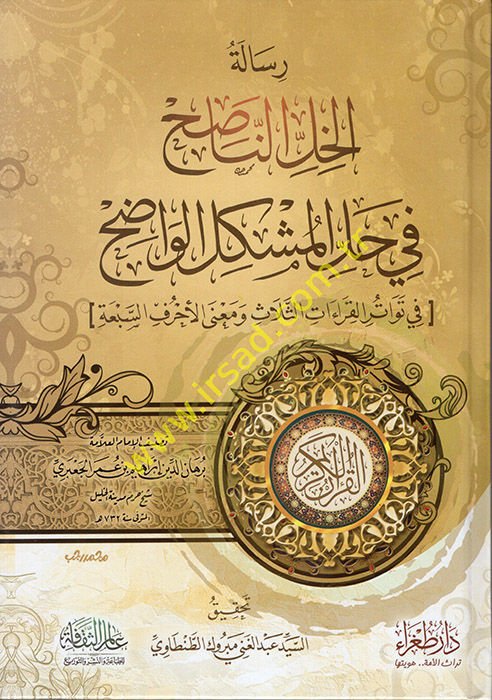 رسالة
الخل الناصح
في حل المشكل الواضح
[في تواتر القراءات الثلاث ومعنى الأحرف السبعة]
القرآن الكريم
الإمام العلامة
برهان الدين إبراهيم بن عمر الجعبري
شيخ حرم مدينة الخليل
المتوفى سنة ٧٣٢ هـ
تحقيق
السيد عبد الغني مبروك الطنطاوي
دار طغراء
تراث الأمة.. هويتها
عالم الثقافة
للطباعة والنشر والتوزيع
www.irsad.com.tr